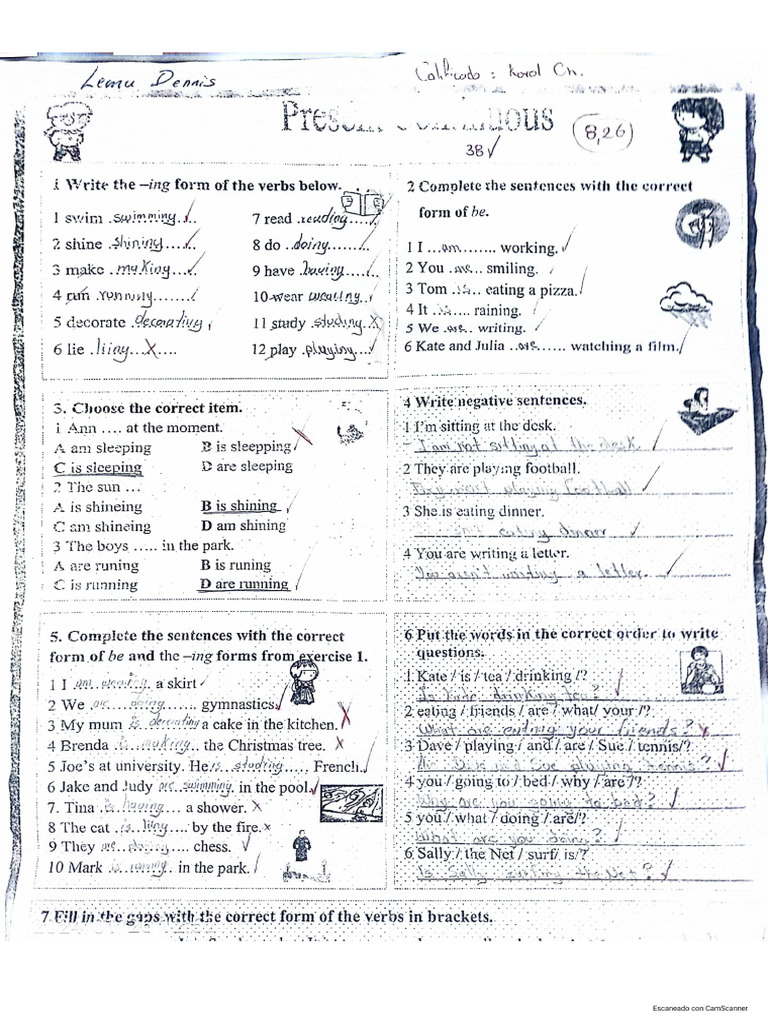 Lemu Dennis
Calificado : Karol Ch.
Present Continuous
8,26
38
1 Write the –ing form of the verbs below.
1 swim swimming
2 shine shining
3 make making
4 run running
5 decorate decorating
6 lie liing
7 read reading
8 do doing
9 have having
10 wear wearing
11 study studing
12 play playing
2 Complete the sentences with the correct
form of be.
1 I ...am........ working.
2 You ..are... smiling.
3 Tom ..is... eating a pizza.
4 It ..is..... raining.
5 We .are.. writing.
6 Kate and Julia ..are...... watching a film.
3. Choose the correct item.
1 Ann .... at the moment.
A am sleeping B is sleepping
C is sleeping D are sleeping
2 The sun ...
A is shineing B is shining
C am shineing D am shining
3 The boys ..... in the park.
A are runing B is runing
C is running D are running
4 Write negative sentences.
1 I'm sitting at the desk.
I am not sitting at the desk
2 They are playing football.
playing football
3 She is eating dinner.
eating dinner
4 You are writing a letter.
You aren't writing a letter.
5. Complete the sentences with the correct
form of be and the –ing forms from exercise 1.
1 I am wearing a skirt
2 We are doing gymnastics.
3 My mum is decorating a cake in the kitchen.
4 Brenda is making the Christmas tree.
5 Joe's at university. He is studing French.
6 Jake and Judy are swimming in the pool.
7. Tina is having a shower.
8 The cat is liing by the fire.
9 They are chess.
10 Mark is in the park.
6 Put the words in the correct order to write
questions.
1 Kate / is / tea / drinking /?
Is Kate drinking tea?
2 eating / friends / are / what/ your /?
What are eating your friends?
3 Dave / playing / and / are / Sue / tennis/?
Are Dave and Sue playing tennis?
4 you / going to / bed / why / are /?
Why are you going to bed?
5 you / what / doing / are/?
What are you doing?
6 Sally / the Net / surf/ is/?
Is Sally surfing the Net?
7 Fill in the gaps with the correct form of the verbs in brackets.
Escaneado con CamScanner